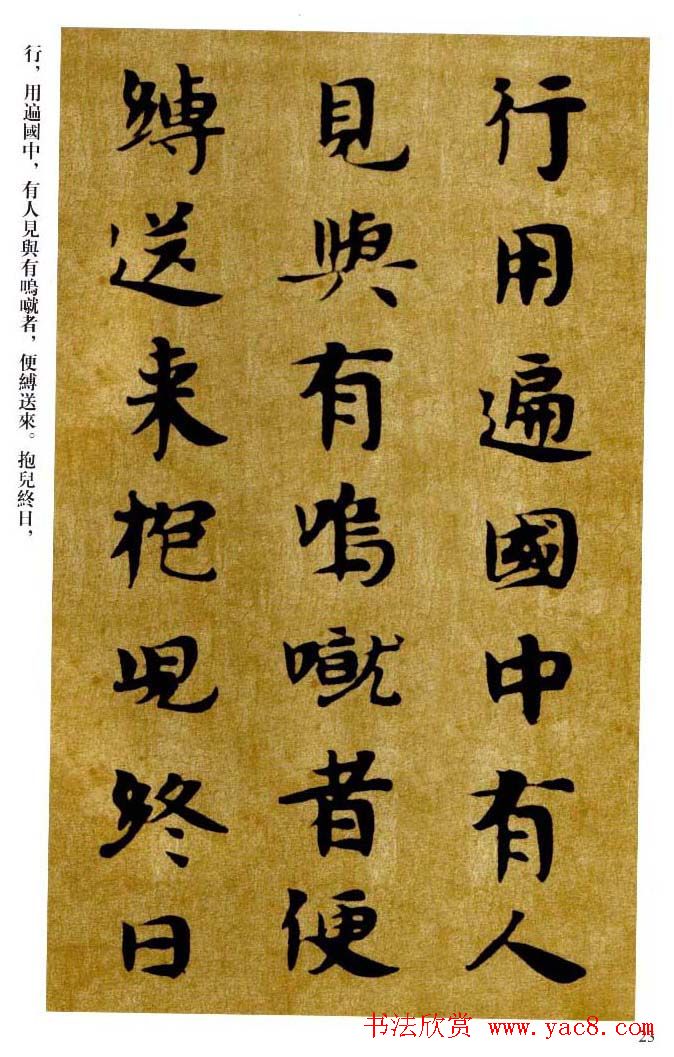 行用遍國中有人
見與有嗚噈者便
縛送来抱児終日
行，用遍國中，有人見與有嗚噈者，便縛送來。抱兒終日，
书法欣赏 www.yac8.com
25